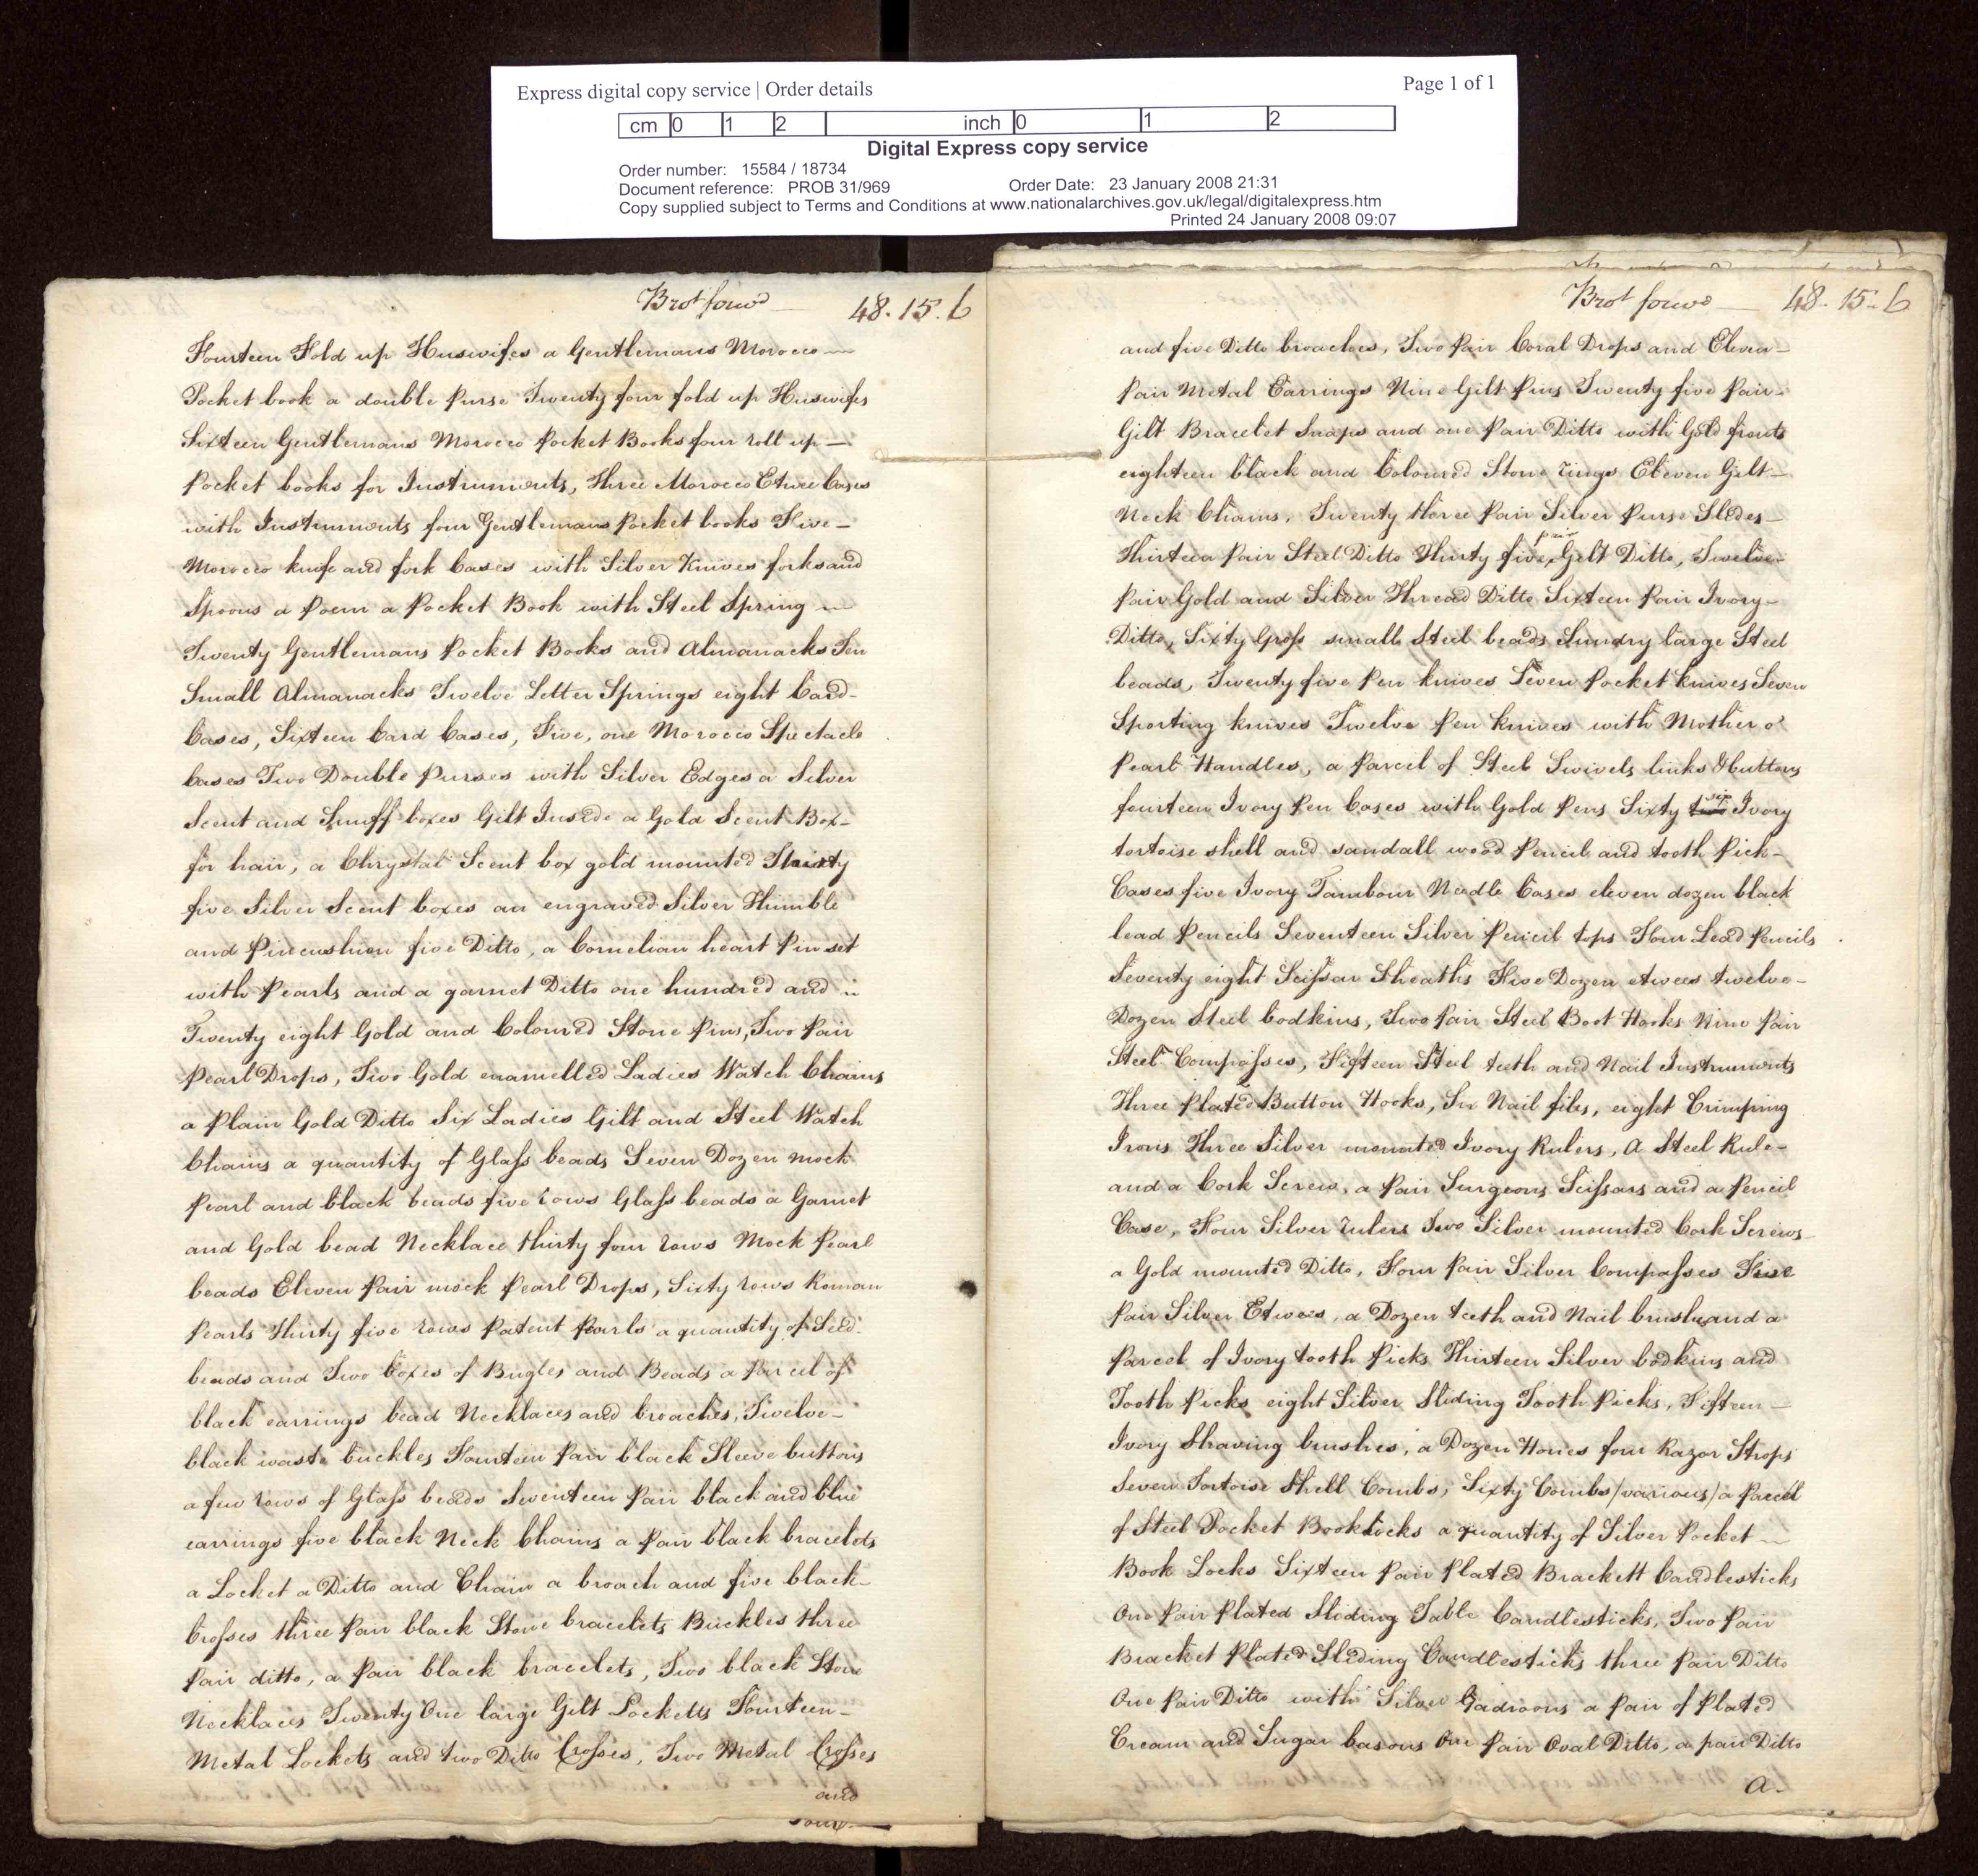 Express digital copy service | Order details
Page 1 of 1
cm 0 1 2 inch 0 1 2
Digital Express copy service
Order number: 15584 / 18734
Document reference: PROB 31/969 Order Date: 23 January 2008 21:31
Copy supplied subject to Terms and Conditions at www.nationalarchives.gov.uk/legal/digitalexpress.htm
Printed 24 January 2008 09:07
Brot forwd 48. 15. 6
Fourteen Fold up Huswifes a Gentlemans Morocco
Pocket book a double Purse Twenty four fold up Huswifes
Sixteen Gentlemans Morocco Pocket Books four roll up
Pocket books for Instruments, Three Morocco Etwee Cases
with Instruments four Gentlemans Pocket books Five
Morocco knife and fork Cases with Silver Knives forks and
Spoons a Poem a Pocket Book with Steel Spring
Twenty Gentlemans Pocket Books and Almanacks Ten
Small Almanacks Twelve Letter Springs eight Card
Cases, Sixteen Card Cases, Five, one Morocco Spectacle
Cases Two Double Purses with Silver Edges a Silver
Scent and Snuff boxes Gilt Inside a Gold Scent Box
for hair, a Chrystal Scent box gold mounted Thirty
five Silver Scent boxes an engraved Silver Thimble
and Pincushion five Ditto, a Cornelian heart Pin set
with Pearls and a garnet Ditto one hundred and
Twenty eight Gold and Coloured Stone Pins, Two Pair
Pearl Drops, Two Gold enamelled Ladies Watch Chains
a Plain Gold Ditto Six Ladies Gilt and Steel Watch
Chains a quantity of Glass beads Seven Dozen mock
Pearl and black beads five rows Glass beads a Garnet
and Gold bead Necklace thirty four rows Mock Pearl
beads Eleven Pair mock Pearl Drops, Sixty rows Roman
Pearls Thirty five rows Patent Pearls a quantity of Seed
beads and Two boxes of Bugles and Beads a Parcel of
black earrings bead Necklaces and broaches, Twelve
black waste buckles Fourteen Pair black Sleeve buttons
a few rows of Glass beads Seventeen Pair black and blue
earrings five black Neck Chains a Pair black bracelets
a Locket a Ditto and Chain a broach and five black
Crosses three Pair black Stone bracelets Buckles three
Pair ditto, a Pair black bracelets, Two black Stone
Necklaces Twenty One large Gilt Locketts Fourteen
Metal Lockets and two Ditto Crosses, Two Metal Crosses
and
Brot forwd 48. 15. 6
and five Ditto broaches, Two Pair Coral Drops and Eleven
Pair Metal Earrings Nine Gilt Pins Twenty five Pair
Gilt Bracelet Snaps and one Pair Ditto with Gold fronts
eighteen black and Coloured Stone rings Eleven Gilt
Neck Chains, Twenty three Pair Silver Purse Slides
Thirteen Pair Steel Ditto Thirty five pair Gilt Ditto, Twelve
Pair Gold and Silver Thread Ditto Sixteen Pair Ivory
Ditto, Sixty Gross small Steel beads Sundry large Steel
beads, Twenty five Pen knives Seven Pocket knives Seven
Sporting knives Twelve Pen knives with Mother o'
Pearl Handles, a Parcel of Steel Swivels links & buttons
fourteen Ivory Pen Cases with Gold Pens Sixty six Ivory
tortoise shell and sandall wood Pencil and tooth Pick
Cases five Ivory Tambour Needle Cases eleven dozen black
lead Pencils Seventeen Silver Pencil tops Four Lead Pencils
Seventy eight Scissar Sheaths Five Dozen etwees twelve
Dozen Steel bodkins, Two Pair Steel Boot Hooks Nine Pair
Steel Compasses, Fifteen Steel teeth and Nail Instruments
Three Plated Button Hooks, Six Nail files, eight Crimping
Irons Three Silver mounted Ivory Rulers, A Steel Rule
and a Cork Screw, a Pair Surgeons Scissars and a Pencil
Case, Four Silver rulers Two Silver mounted Cork Screws
a Gold mounted Ditto, Four Pair Silver Compasses Five
Pair Silver Etwees, a Dozen teeth and Nail brushes and a
Parcel of Ivory tooth Picks Thirteen Silver bodkins and
Tooth Picks eight Silver Sliding Tooth Picks, Fifteen
Ivory Shaving brushes, a Dozen Hones four Razor Strops
Seven Tortoise Shell Combs, Sixty Combs /various/ a Parcel
of Steel Pocket Book locks a quantity of Silver Pocket
Book Locks Sixteen Pair Plated Brackett Candlesticks
One Pair Plated Sliding Table Candlesticks, Two Pair
Bracket Plated Sliding Candlesticks three Pair Ditto
One Pair Ditto with Silver Gadroons a Pair of Plated
Cream and Sugar basons One Pair Oval Ditto, a pair Ditto
a